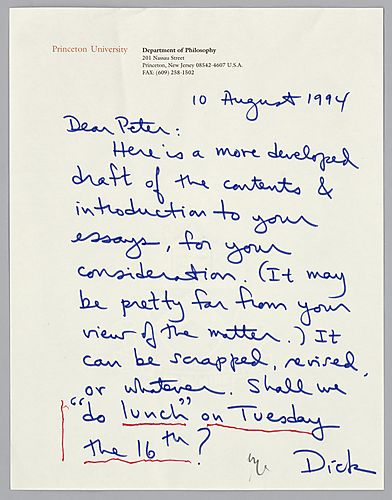 Princeton University
Department of Philosophy
201 Nassau Street
Princeton, New Jersey 08542-4607 U.S.A.
FAX: (609) 258-1502
10 August 1994
Dear Peter:
Here is a more developed
draft of the contents &
introduction to your
essays, for your
consideration. (It may
be pretty far from your
view of the matter.) It
can be scrapped, revised,
or whatever. Shall we
"do lunch" on Tuesday
the 16th?
Dick